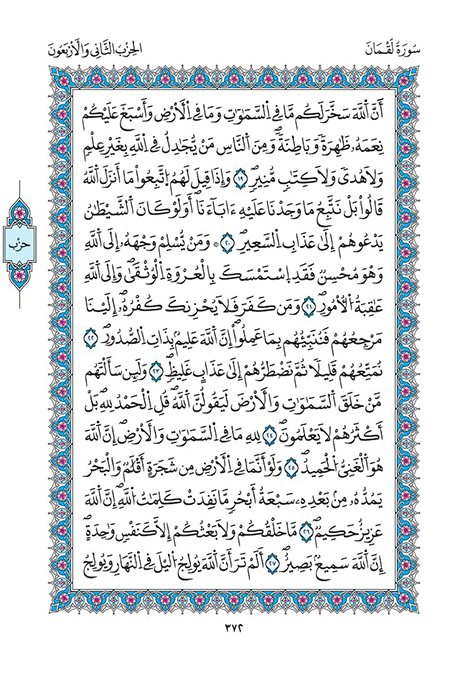 سُورَةُ لُقْمَانَ
الحِزْبُ الثَّانِي وَالْأَرْبَعُونَ
أَنَّ اَللَّهَ سَخَّرَ لَكُم مَّا فِي اِلسَّمَٰوَٰتِ وَمَا فِي اِلْأَرْضِ وَأَسْبَغَ عَلَيْكُمْ
نِعَمَهُۥ ظَٰهِرَةٗ وَبَاطِنَةٗۖ وَمِنَ اَلنَّاسِ مَنْ يُّجَٰدِلُ فِي اِللَّهِ بِغَيْرِ عِلْمٖ
وَلَا هُدىٗ وَلَا كِتَٰبٖ مُّنِيرٖۖ ١٩ وَإِذَا قِيلَ لَهُمُ اُتَّبِعُواْ مَا أَنزَلَ اَللَّهُ
قَالُواْ بَلْ نَتَّبِعُ مَا وَجَدْنَا عَلَيْهِ ءَابَآءَنَاۖ أَوَلَوْ كَانَ اَلشَّيْطَٰنُ
يَدْعُوهُمْ إِلَىٰ عَذَابِ اِلسَّعِيرِۖ ٢٠ ۞ وَمَنْ يُّسْلِمْ وَجْهَهُۥ إِلَى اَللَّهِ
وَهُوَ مُحْسِنٞ فَقَدِ اِسْتَمْسَكَ بِالْعُرْوَةِ اِلْوُثْقَىٰۖ وَإِلَى اَللَّهِ
عَٰقِبَةُ اُلْأُمُورِۖ ٢١ وَمَن كَفَرَ فَلَا يُحْزِنكَ كُفْرُهُۥۖ إِلَيْنَا
مَرْجِعُهُمْ فَنُنَبِّئُهُم بِمَا عَمِلُواْۖ إِنَّ اَللَّهَ عَلِيمُۢ بِذَاتِ اِلصُّدُورِۖ ٢٢
نُمَتِّعُهُمْ قَلِيلٗا ثُمَّ نَضْطَرُّهُمْ إِلَىٰ عَذَابٍ غَلِيظٖۖ ٢٣ وَلَئِن سَأَلْتَهُم
مَّنْ خَلَقَ اَلسَّمَٰوَٰتِ وَالْأَرْضَ لَيَقُولُنَّ اَللَّهُۖ قُلِ اِلْحَمْدُ لِلهِۖ بَلْ
أَكْثَرُهُمْ لَا يَعْلَمُونَۖ ٢٤ لِلهِ مَا فِي اِلسَّمَٰوَٰتِ وَالْأَرْضِۖ إِنَّ اَللَّهَ
هُوَ اَلْغَنِيُّ اُلْحَمِيدُۖ ٢٥ وَلَوْ أَنَّمَا فِي اِلْأَرْضِ مِن شَجَرَةٍ أَقْلَٰمٞ وَالْبَحْرُ
يَمُدُّهُۥ مِنۢ بَعْدِهِۦ سَبْعَةُ أَبْحُرٖ مَّا نَفِدَتْ كَلِمَٰتُ اُللَّهِۖ إِنَّ اَللَّهَ
عَزِيزٌ حَكِيمٞۖ ٢٦ مَّا خَلْقُكُمْ وَلَا بَعْثُكُمْ إِلَّا كَنَفْسٖ وَٰحِدَةٍۖ
إِنَّ اَللَّهَ سَمِيعُۢ بَصِيرٌۖ ٢٧ أَلَمْ تَرَ أَنَّ اَللَّهَ يُولِجُ اُلَّيْلَ فِي اِلنَّهَارِ وَيُولِجُ
حِزْب
٣٧٢